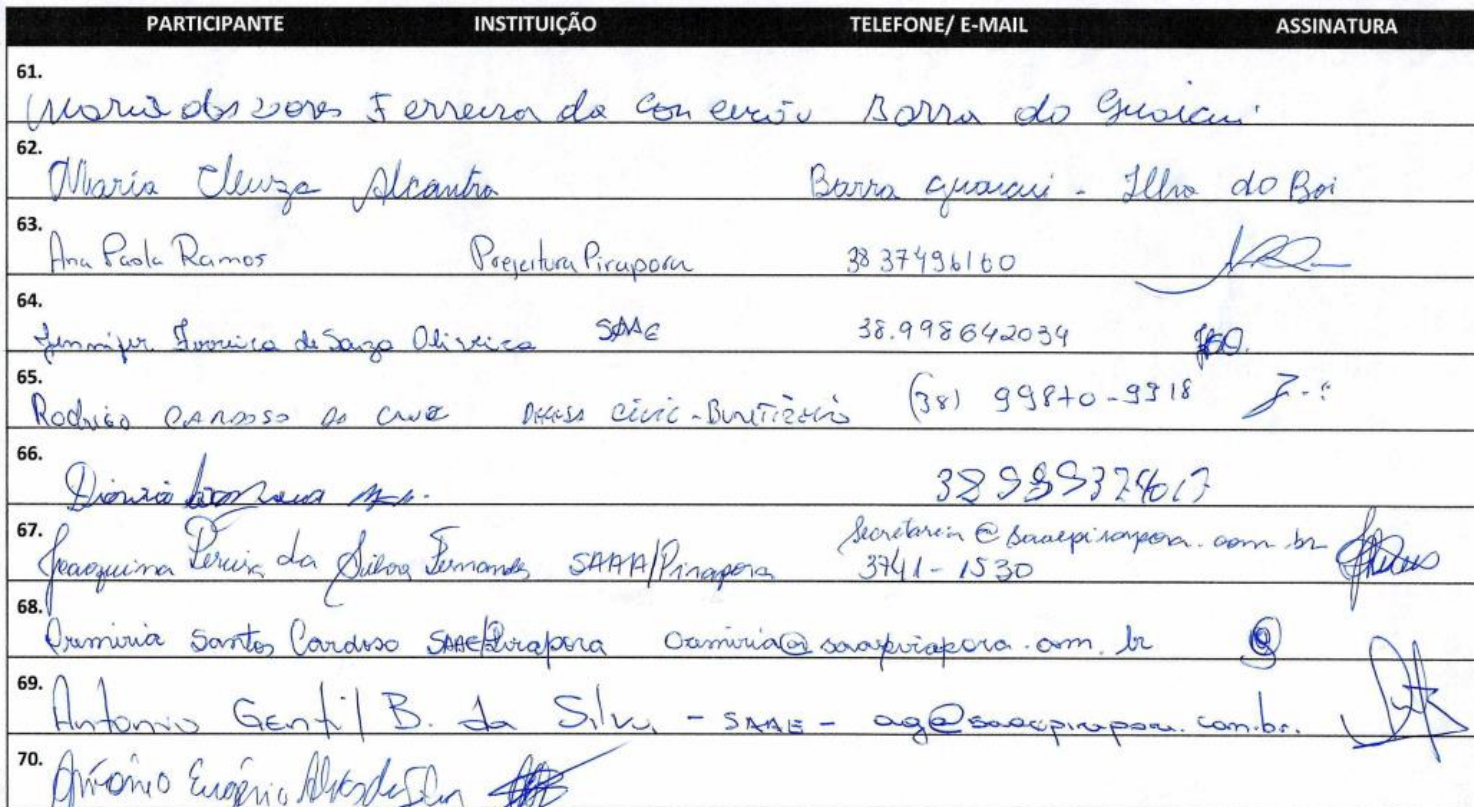 PARTICIPANTE INSTITUIÇÃO TELEFONE/ E-MAIL ASSINATURA
61.
Maria das Ferreira da Conceição Barra do Guaicui
62.
Maria Cleuza Alcantra Barra guaicui - Ilha do Boi
63.
Ana Paola Ramos Prefeitura Pirapora 38 37496160
64.
Jennifer Ferreira de Souza Oliveira SAAE 38.998642034
65.
Rodrigo CARDOSO DA CRUZ DEFESA CIVIL - BURITIZEIRO (38) 99870-9918
66.
Dionizio
67.
Joaquina Pereira da Silva Fernandes SAAA/Pirapora secretaria@saaepirapora.com.br
3741-1530
68.
Santos Cardoso SAAE/Pirapora
69.
Antonio Gentil B. da Silva - SAAE - ag@saaepirapora.com.br.
70.
Antônio Eugênio Alves da Silva